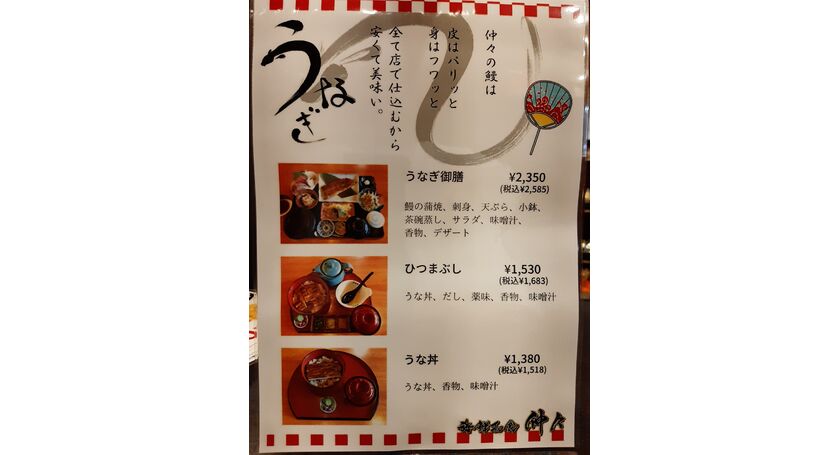 うなぎ
仲々の鰻は
皮はパリッと
身はフワッと
全て店で仕込むから
安くて美味い。
うなぎ御膳
¥2,350
(税込¥2,585)
鰻の蒲焼、刺身、天ぷら、小鉢、
茶碗蒸し、サラダ、味噌汁、
香物、デザート
ひつまぶし
¥1,530
(税込¥1,683)
うな丼、だし、薬味、香物、味噌汁
うな丼
¥1,380
(税込¥1,518)
うな丼、香物、味噌汁
仲々